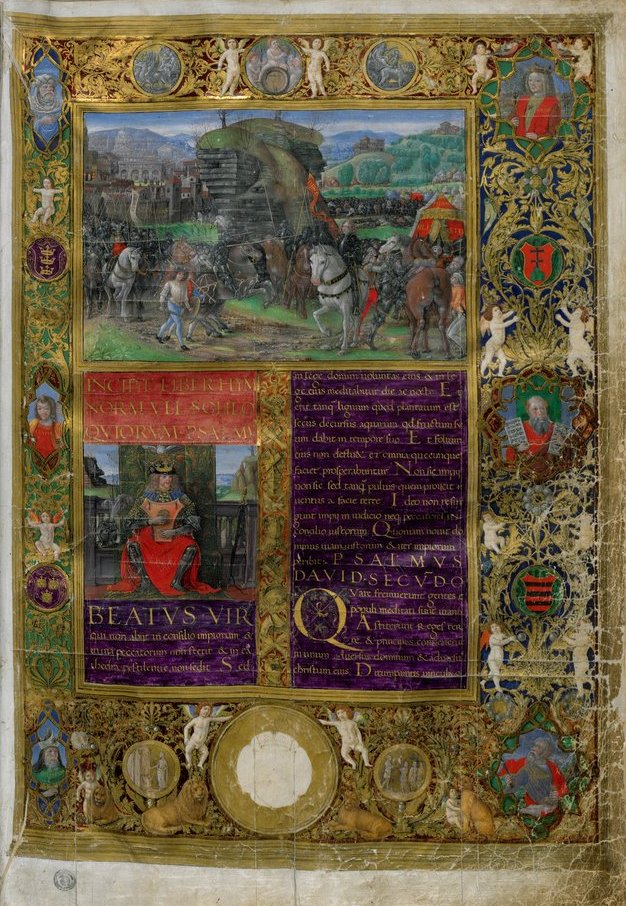 INCIPIT LIBER HYM
NORVM VEL SOLILO
QVIORVM PSALMI
BEATVS VIR
qui non abiit in consilio impiorum &
in via peccatorum non stetit & in ca
thedra pestilentie non sedit S ed
in lege domini voluntas eius & in le
ge eius meditabitur die ac nocte E t
erit tanq lignum quod plantatum est
secus decursus aquarum qd fructum su
um dabit in tempore suo E t folium
eius non defluet et omnia quecunque
faciet prosperabuntur N on sic impij
non sic sed tanq pulvis quem proicit
ventus a facie terre I deo non resur
gunt impij in iudicio neq peccatores in
consilio iustorum Q uoniam novit do
minus viam iustorum & iter impiorum
peribit PSALMVS
DAVID SECVDO
QVare fremuerunt gentes et
populi meditati sunt inania
A stiterunt reges ter
re & principes convenerunt
in unum adversus dominum & adversus
christum eius D irumpamus vincula